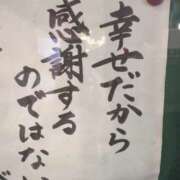 幸せだから
感謝する
のではない